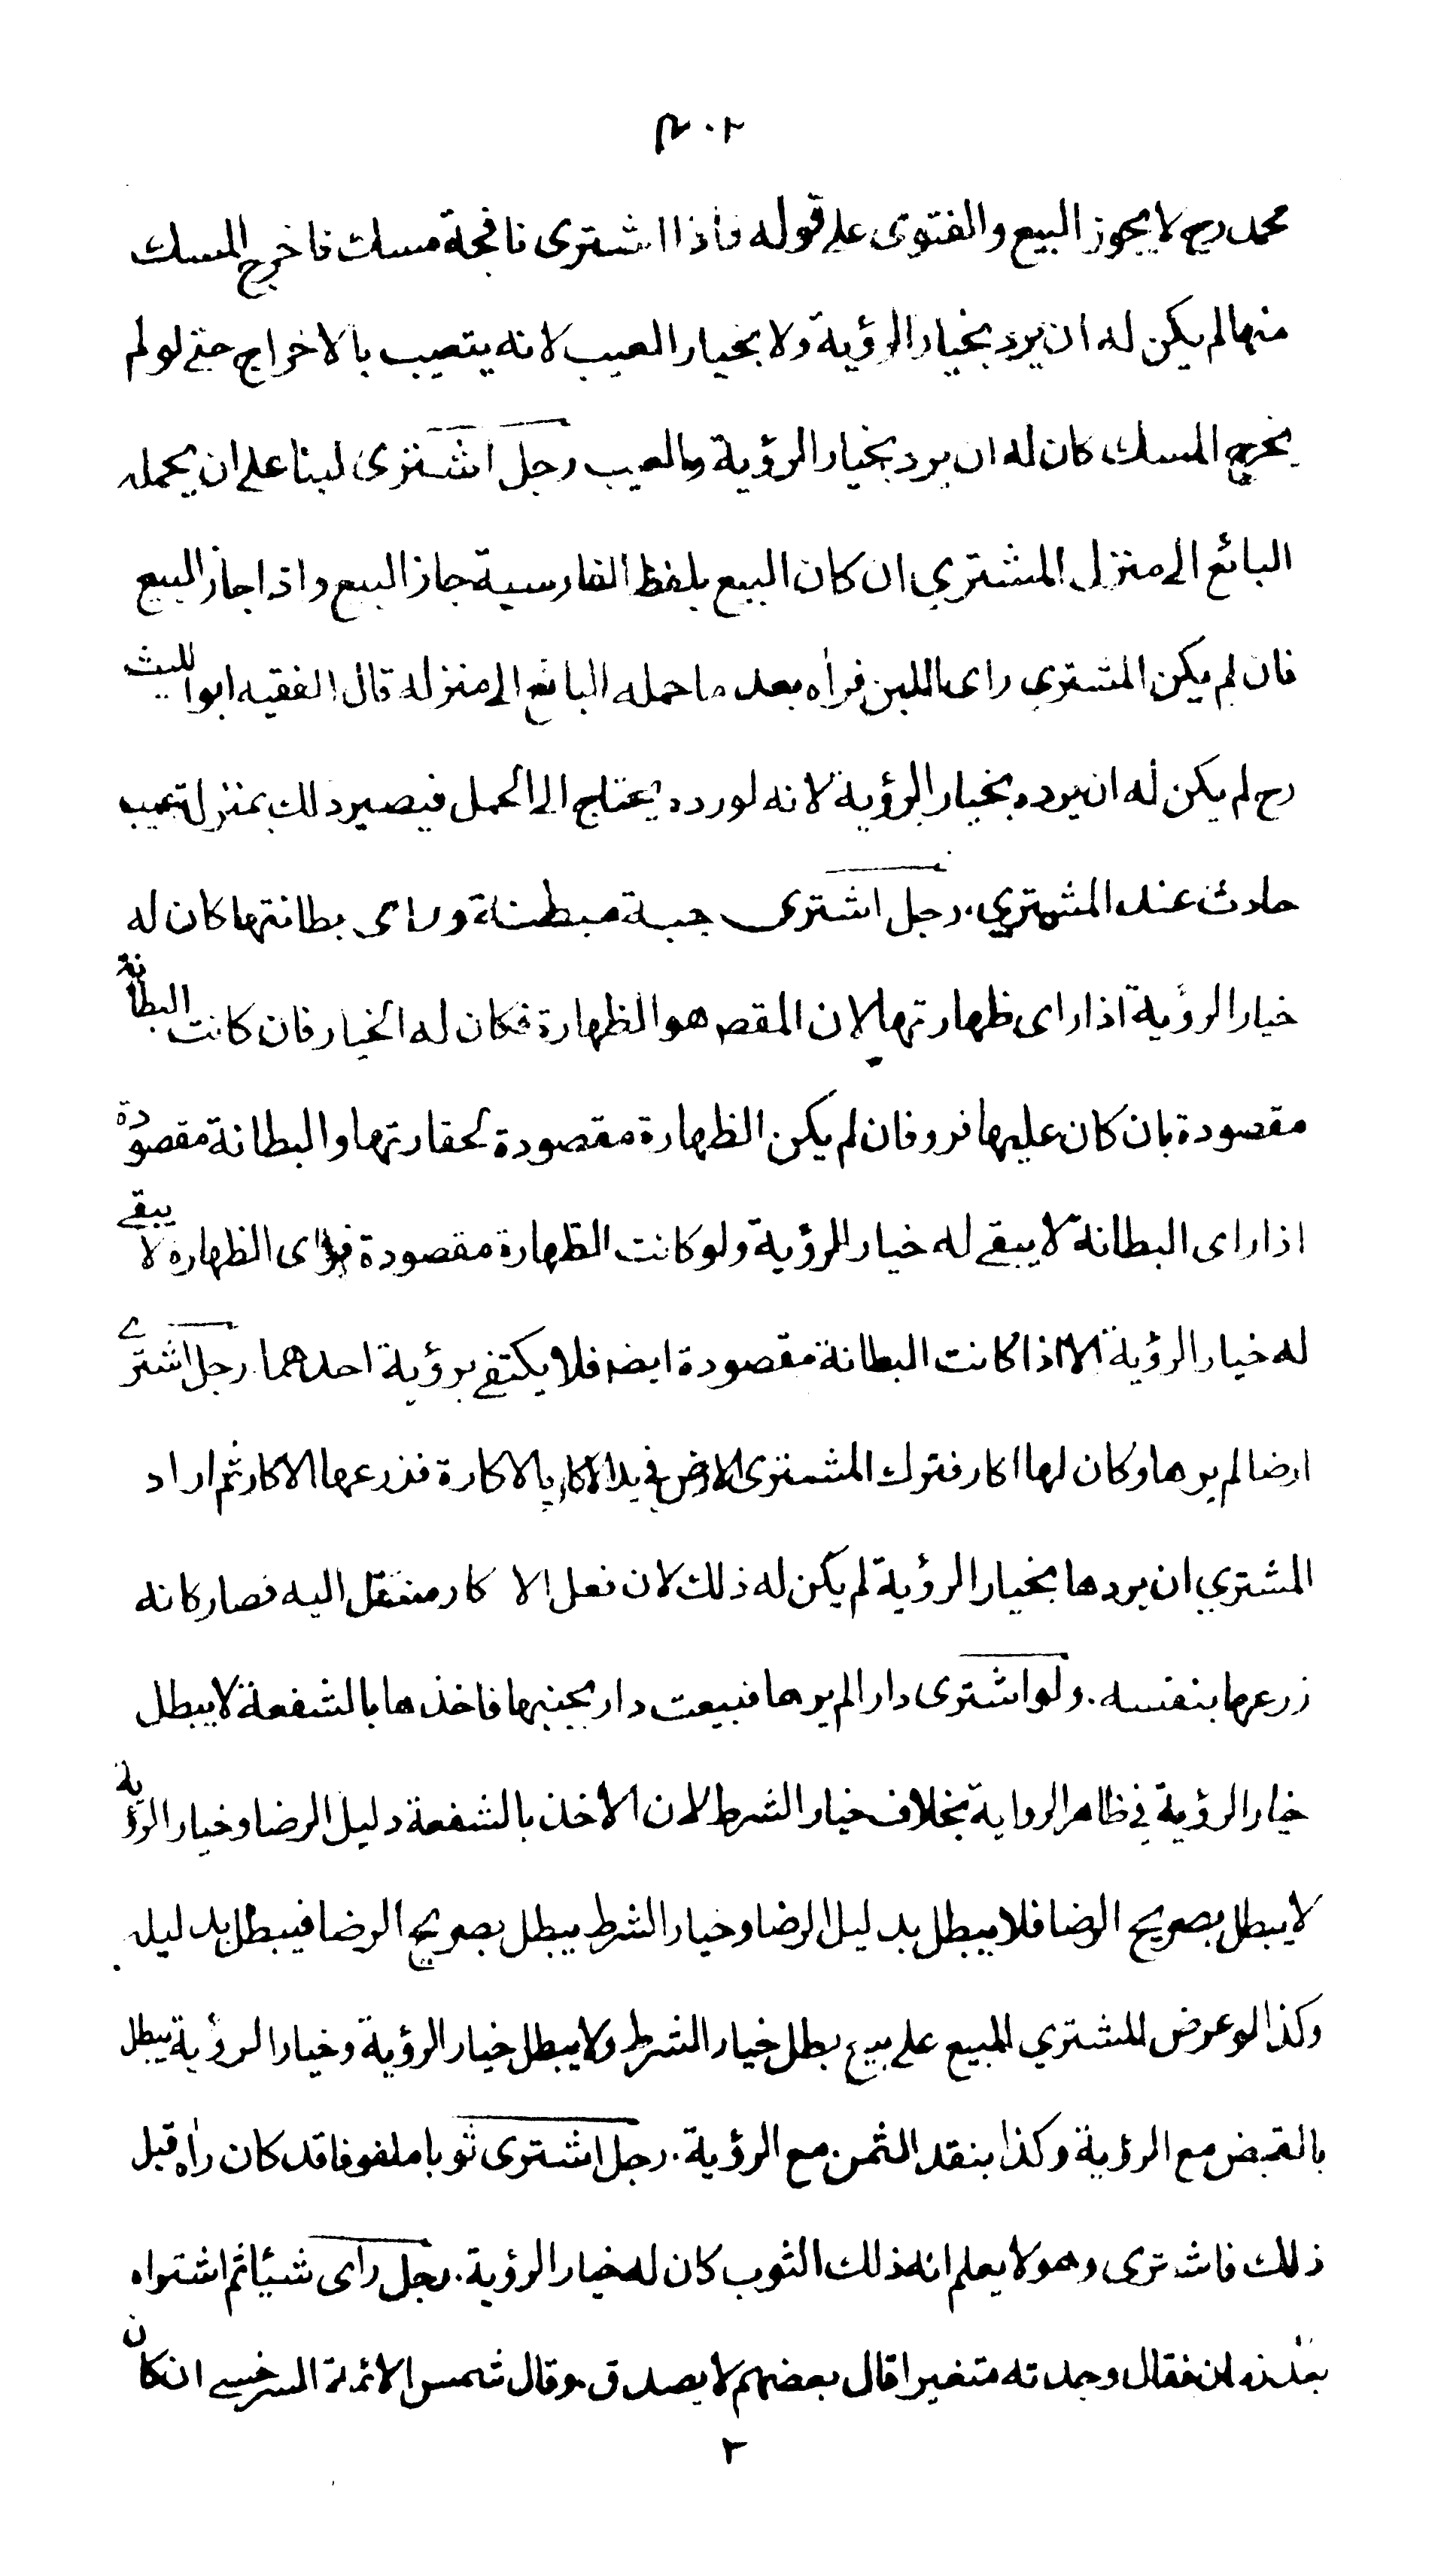 ٤٠٢
محمد رح لا يجوز البيع والفتوى على قوله فاذا اشترى نافجة مسك فاخرج المسك
منها لم يكن له ان يرد بخيار الرؤية ولا بخيار العيب لانه يتعيب بالاخراج حتى لو لم
يخرج المسك كان له ان يرد بخيار الرؤية والعيب رجل اشترى لبنا على ان يحمله
البائع الى منزل المشتري ان كان البيع بلفظ الفارسية جاز البيع واذا جاز البيع
فان لم يكن المشتري راى اللبن فرأه بعد ما حمله البائع الى منزله قال الفقيه ابو الليث
رح لم يكن له ان يرده بخيار الرؤية لانه لو رده يحتاج الى الحمل فيصير ذلك بمنزلة عيب
حادث عند المشتري. رجل اشترى جبة مبطنة وراى بطانتها كان له
خيار الرؤية اذا راى ظهارتها لان المقص هو الظهارة فكان له الخيار فان كانت البطانة
مقصودة بان كان عليها فرو فان لم يكن الظهارة مقصودة لحقارتها والبطانة مقصودة
اذا راى البطانة لا يبقے له خيار الرؤية ولو كانت الظهارة مقصودة فرأى الظهارة لا يبقے
له خيار الرؤية الا اذا كانت البطانة مقصودة ايضا فلا يكتفے برؤية احدهما. رجل اشترے
ارضا لم يرها وكان لها اكار فترك المشترى الارض في يد الاكار بالاكارة فزرعها الاكار ثم اراد
المشتري ان يردها بخيار الرؤية لم يكن له ذلك لان فعل الاكار منتقل اليه فصار كانه
زرعها بنفسه. ولو اشترى دارا لم يرها فبيعت دار بجنبها فاخذها بالشفعة لا يبطل
خيار الرؤية في ظاهر الرواية بخلاف خيار الشرط لان الاخذ بالشفعة دليل الرضا وخيار الرؤية
لا يبطل بصريح الرضا فلا يبطل بدليل الرضا وخيار الشرط يبطل بصريح الرضا فيبطل بدليله
وكذا لو عرض المشتري المبيع على بيع بطل خيار الشرط ولا يبطل خيار الرؤية وخيار الرؤية يبطل
بالقبض مع الرؤية وكذا بنقد الثمن مع الرؤية. رجل اشترى ثوبا ملفوفا قد كان رأه قبل
ذلك فاشترى وهو لا يعلم انه ذلك الثوب كان له خيار الرؤية. رجل راى شيئا ثم اشتراه
فقال وجدته متغيرا قال بعضهم لا يصدق وقال شمس الائمة السرخسے ان كان
٢